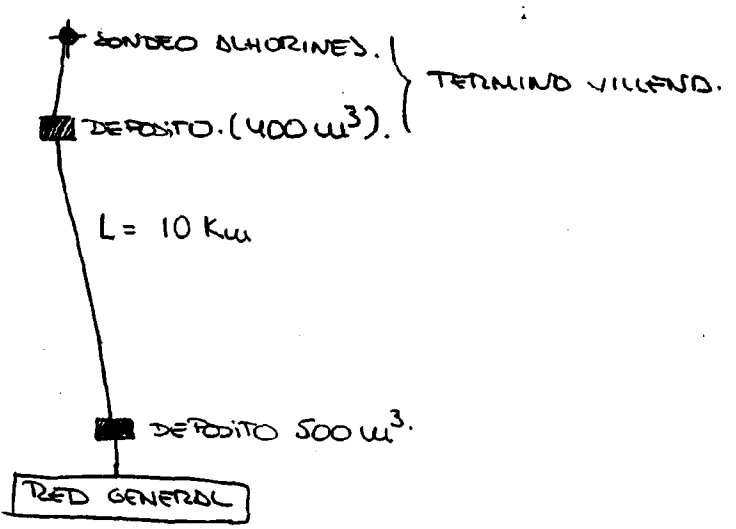 SONDEO ALHORINES.
TERMINO VILLENA.
DEPOSITO. (400 m³).
L = 10 Km
DEPOSITO 500 m³.
RED GENERAL